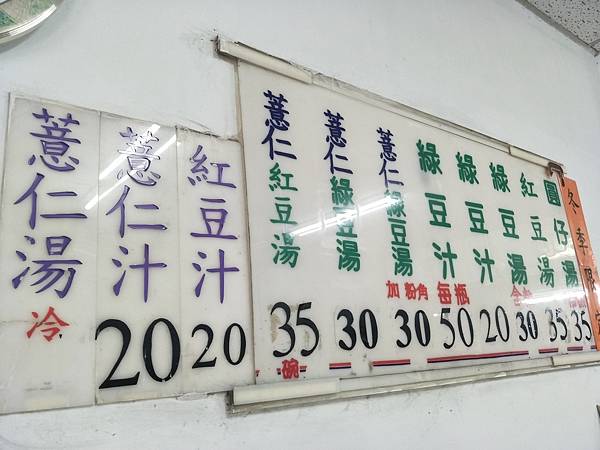 薏仁湯
冷
薏仁汁
20
紅豆汁
20
薏仁紅豆湯
35
碗
薏仁綠豆湯
30
薏仁綠豆湯
加粉角
30
綠豆汁
每瓶
50
綠豆汁
20
綠豆湯
30
紅豆湯
35
圓仔湯
35
冬季限